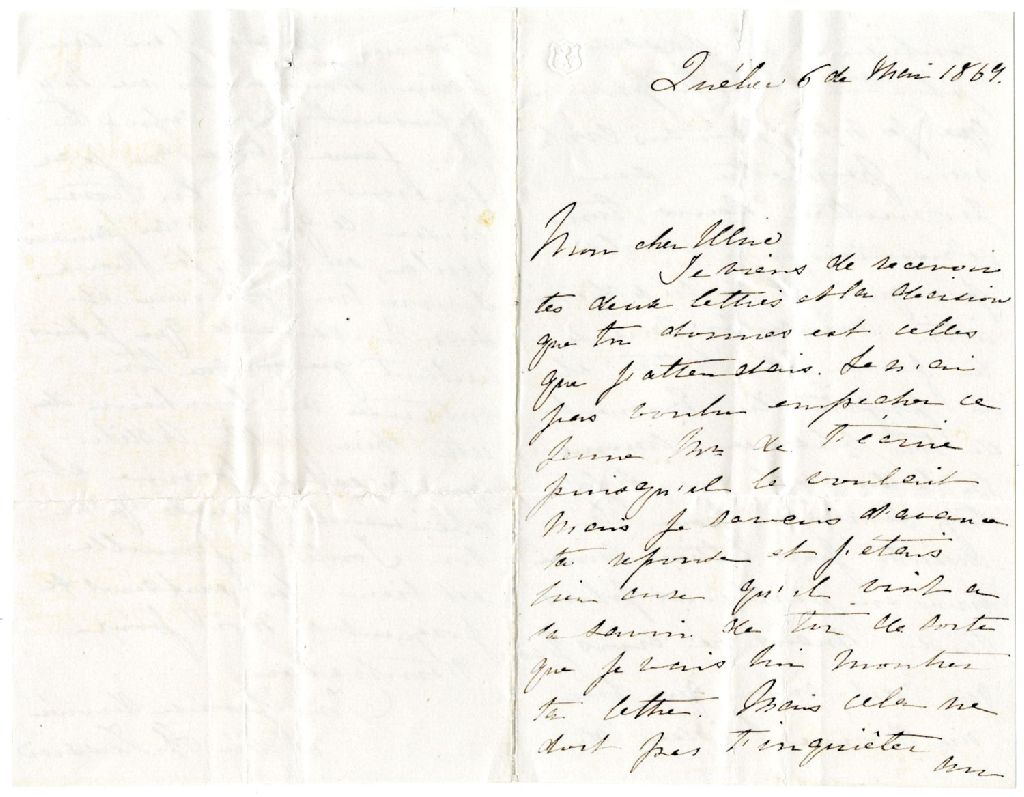 Québec 6 de Mai 1869.
Mon cher Ulric
Je viens de recevoir
tes deux lettres et la decision
que tu donnes est celles
que j'attendais. Je n'ai
pas voulu empêcher ce
jeune Mr de t'écrire
puisqu'il le voulait
Mais je savais d'avance
ta reponse et j'etais
bien aise qu'il vint a
la savoir de toi de sorte
que je vais lui montrer
ta lettre. Mais cela ne
doit pas t'inquiéter